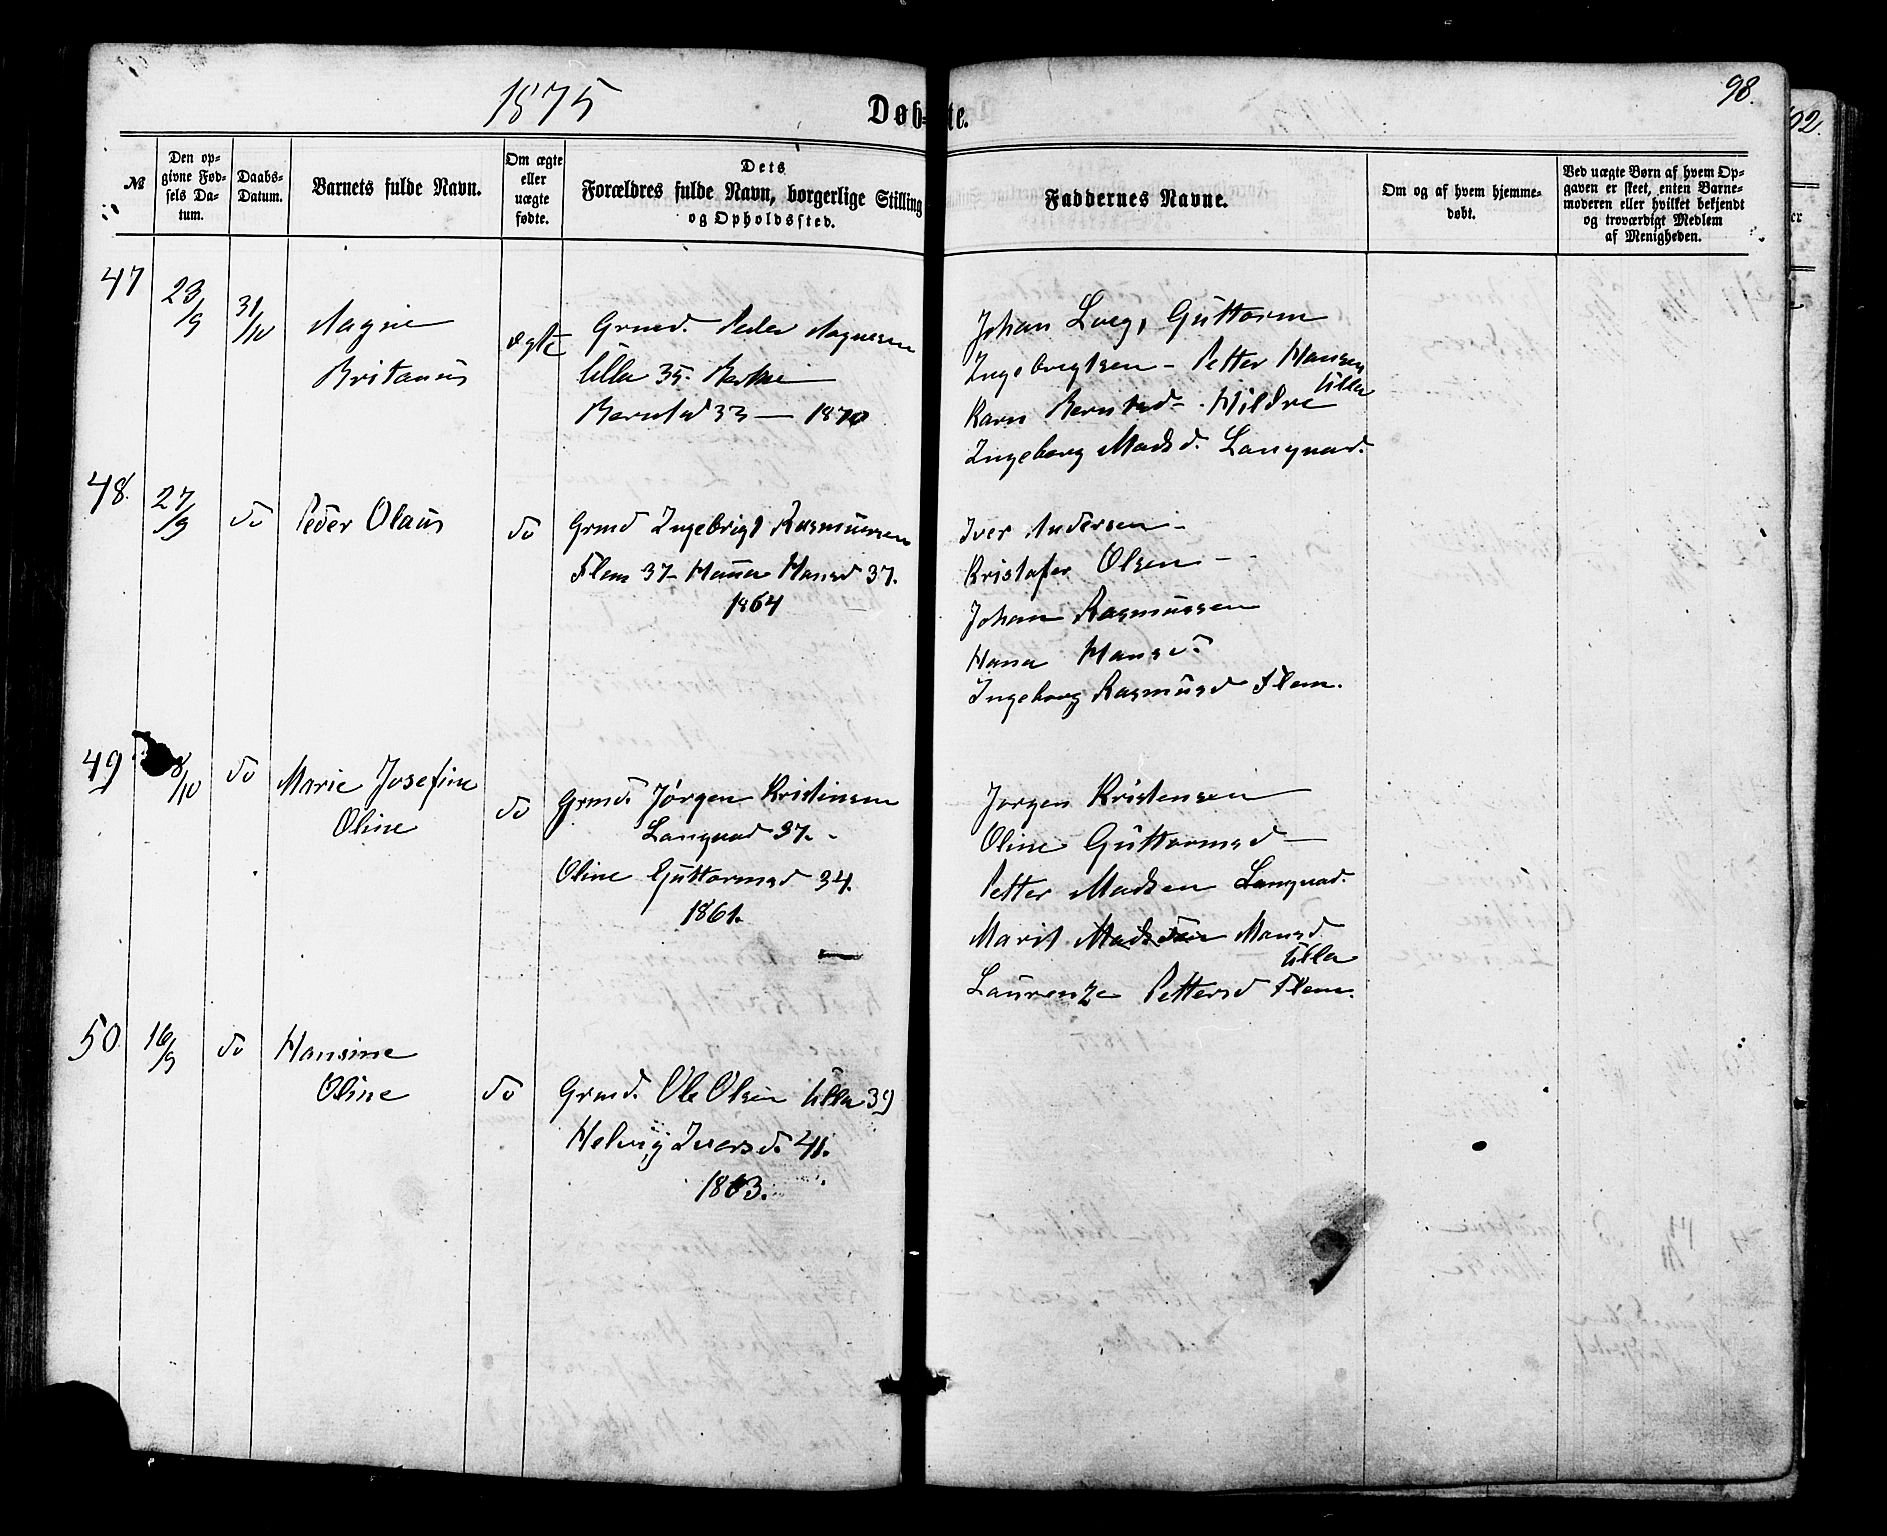 1875
98.
Døb-te.
102.
№
Den op-
givne Fød-
sels Da-
tum.
Daabs-
Datum.
Barnets fulde Navn.
Om ægte
eller
uægte
fødte.
Dets
Forældres fulde Navn, borgerlige Stilling
og Opholdssted.
Faddernes Navne.
Om og af hvem hjemme-
døbt.
Ved uægte Børn af hvem Op-
gaven er skeet, enten Barne-
moderen eller hvilket bekjendt
og troværdigt Medlem
af Menigheden.
47
23/9
31/10
Aagne
Britanus
ægte
Grmd. Peder Aagnesen
Ulla 35.
Berntsd 33 — 1870
Johan Guttorm
Ingebregtsen - Petter Hansen
Ulla
Karn Berntsd - Hildre
Ingeborg Madsd. Longvad.
48.
27/9
do
Peder Olaus
do
Grmd Ingebrigt Rasmussen
Flem 37 - Hansd 37.
1864
Iver Andersen -
Kristofer Olsen -
Johan Rasmussen
Hana Hansd
Ingeborg Rasmusd Flem.
49
8/10
do
Marie Josefine
Oline
do
Grmd. Jørgen Kristensen
Longvad 37. -
Oline Guttormsd 34.
1861.
Jorgen Kristensen
Oline Guttormsd —
Petter Madsen Longvad.
Marit Hansd
Ulla
Laurenze Pettersd Flem.
50
16/9
do
Hansine
Oline
do
Grmd. Ole Olsen Ulla 39
Helvig Iversd. 41.
1863.